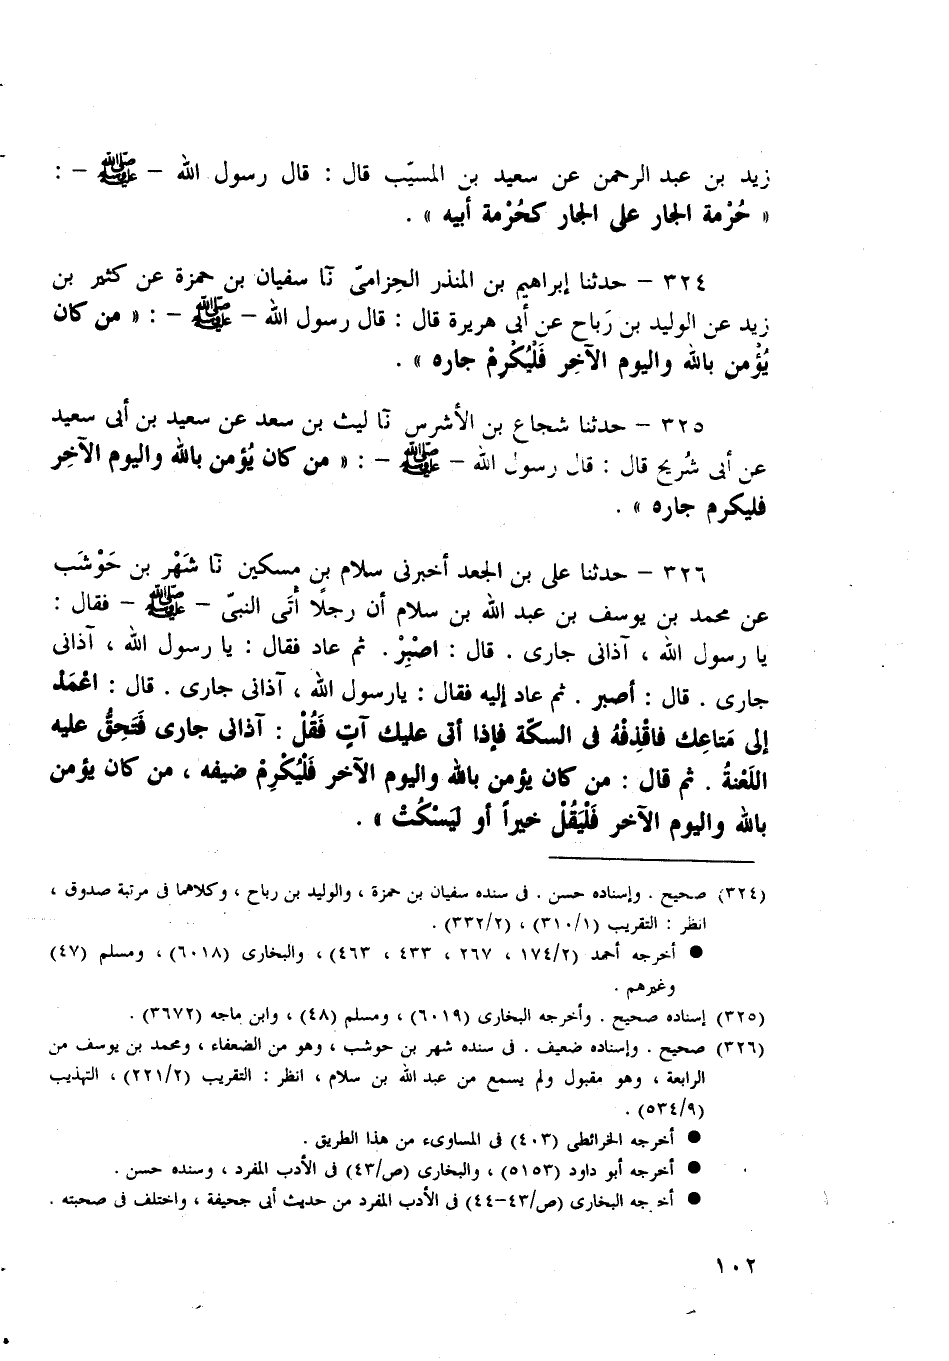 زيد بن عبد الرحمن عن سعيد بن المسيّب قال : قال رسول الله – ﷺ – :
« حُرْمة الجار على الجار كحُرْمة أبيه » .
٣٢٤ – حدثنا إبراهيم بن المنذر الحِزامىّ نَا سفيان بن حمزة عن كثير بن
زيد عن الوليد بن رَباح عن أبى هريرة قال : قال رسول الله – ﷺ – : « من كان
يُؤْمن بالله واليوم الآخِر فَلْيُكْرِمْ جاره » .
٣٢٥ – حدثنا شجاع بن الأشرس نَا ليث بن سعد عن سعيد بن أبى سعيد
عن أبى شُريح قال : قال رسول الله – ﷺ – : « من كان يُؤمن بالله واليوم الآخِر
فليكرم جاره » .
٣٢٦ – حدثنا على بن الجعد أخبرنى سلام بن مسكين نَا شَهْر بن حَوْشَب
عن محمد بن يوسف بن عبد الله بن سلام أن رجلًا أتَى النبىّ – ﷺ – فقال :
يا رسول الله ، آذانى جارى . قال : اصْبِرْ . ثم عاد فقال : يا رسول الله ، آذانى
جارى . قال : أصبر . ثم عاد إليه فقال : يارسول الله ، آذانى جارى . قال : اعْمَدْ
إلى مَتاعِك فاقْذِفْهُ فى السكّة فإذا أتى عليك آتٍ فَقُلْ : آذانى جارى فَتَحِقُّ عليه
اللَعْنةُ . ثم قال : من كان يؤمن بالله واليوم الآخر فَلْيُكْرِمْ ضيفه ، من كان يؤمن
بالله واليوم الآخر فَلْيَقُلْ خيراً أو لِيَسْكُتْ » .
(٣٢٤) صحيح . وإسناده حسن . فى سنده سفيان بن حمزة ، والوليد بن رباح ، وكلاهما فى مرتبة صدوق ،
انظر : التقريب (٣١٠/١) ، (٣٣٢/٢) .
● أخرجه أحمد (١٧٤/٢ ، ٢٦٧ ، ٤٣٣ ، ٤٦٣) ، والبخارى (٦٠١٨) ، ومسلم (٤٧)
وغيرهم .
(٣٢٥) إسناده صحيح . وأخرجه البخارى (٦٠١٩) ، ومسلم (٤٨) ، وابن ماجه (٣٦٧٢) .
(٣٢٦) صحيح . وإسناده ضعيف . فى سنده شهر بن حوشب ، وهو من الضعفاء ، ومحمد بن يوسف من
الرابعة ، وهو مقبول ولم يسمع من عبد الله بن سلام ، انظر : التقريب (٢٢١/٢) ، التهذيب
(٥٣٤/٩) .
● أخرجه الخرائطى (٤٠٣) فى المساوىء من هذا الطريق .
● أخرجه أبو داود (٥١٥٣) ، والبخارى (ص/٤٣) فى الأدب المفرد ، وسنده حسن .
● أخرجه البخارى (ص/٤٣–٤٤) فى الأدب المفرد من حديث أبى جحيفة ، واختلف فى صحبته .
١٠٢